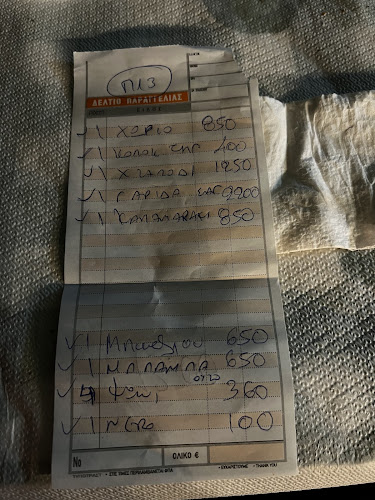 Π13
ΔΕΛΤΙΟ ΠΑΡΑΓΓΕΛΙΑΣ
✓ 1 ΧΩΡΙΟ 850
✓ 1 ΚΟΛΟΚ 400
✓ 1 ΧΤΑΠΟΔΙ 1250
✓ 1 ΓΑΡΙΔΑ ΣΑΓ 2200
✓ 1 ΚΑΛΑΜΑΡΑΚΙ 850
✓ 1 650
✓ 1 ΜΑΛΑΜΑ 650
✓ 4 ΨΩΜΙ 360
✓ 1 ΝΕΡΟ 100
No ΟΛΙΚΟ €